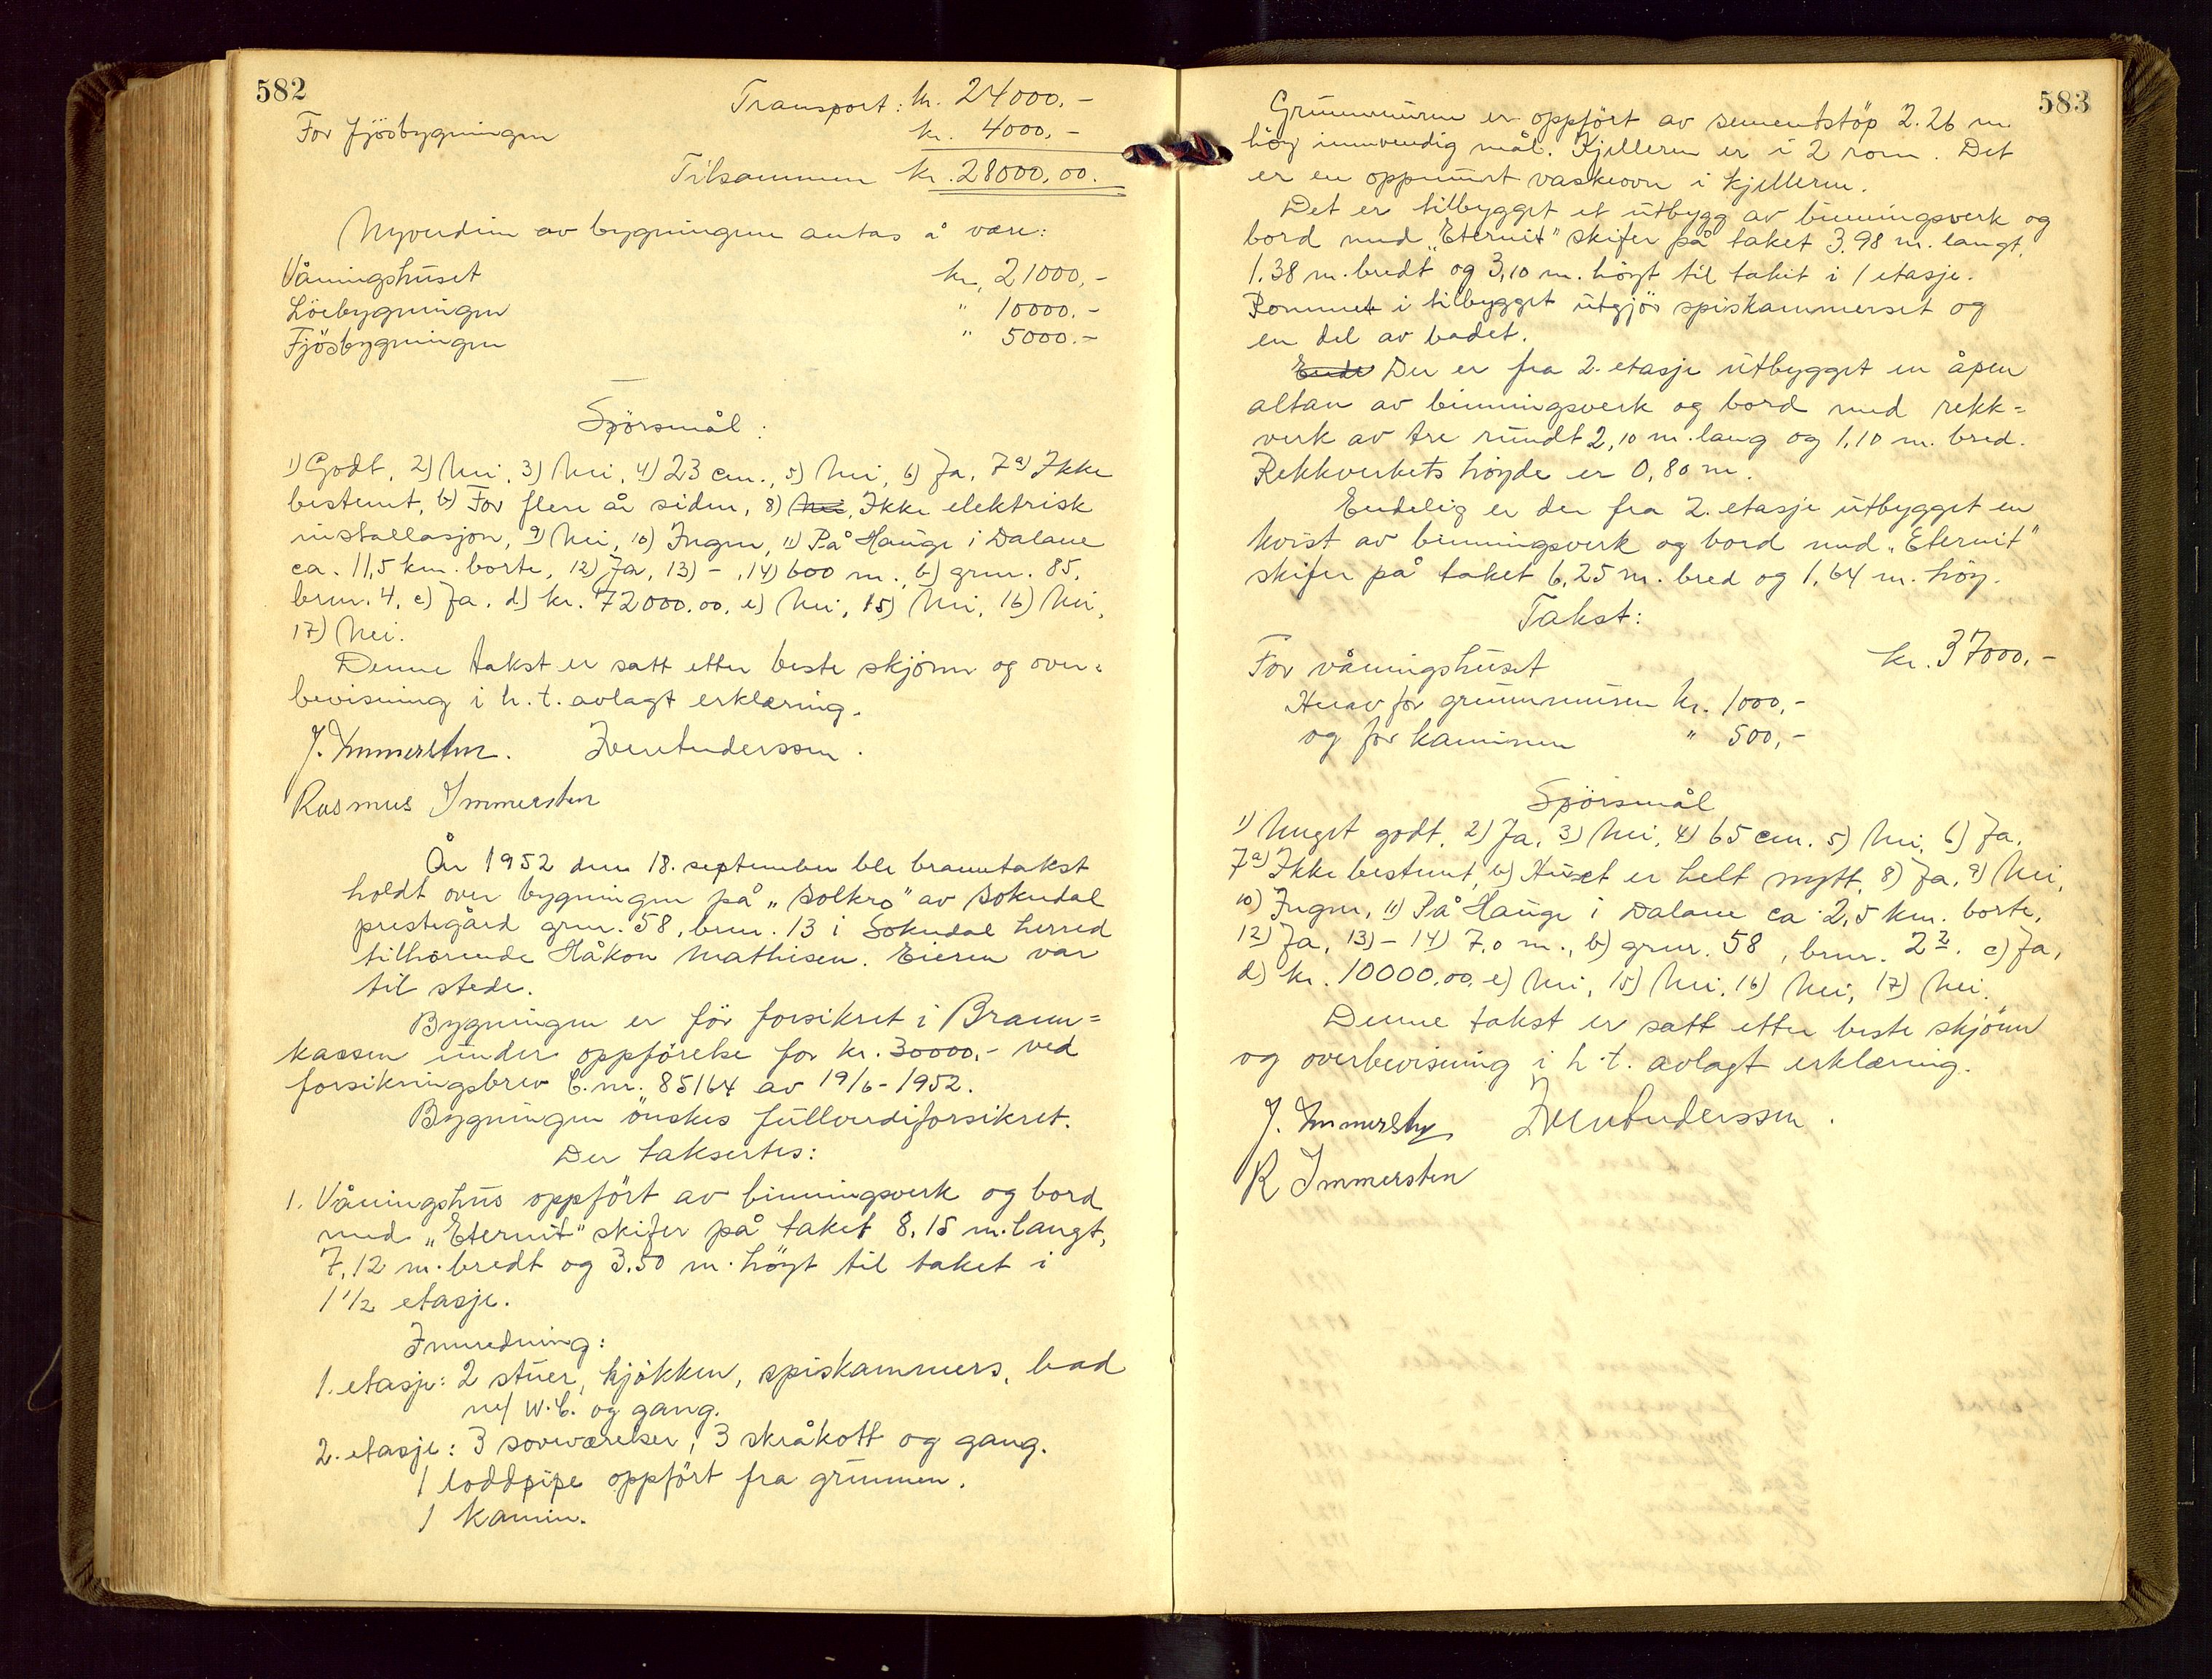 582
Transport: kr. 24000.-
For fjösbygningen kr. 4000,-
Tilsammen kr. 28000,00.
Nyverdien av bygningene antas å være:
Våningshuset kr. 21000,-
Löebygningen " 10000.-
Fjösbygningen " 5000.-
Spörsmål:
1) Godt, 2) Nei, 3) Nei, 4) 23 cm., 5) Nei, 6) Ja, 7a) Ikke
bestemt, b) For flere år siden, 8) Nei, Ikke elektrisk
installasjon, 9) Nei, 10) Ingen, 11) På Hauge i Dalane
ca. 11,5 km. borte, 12) Ja, 13) - , 14) 600 m., b) gnr. 85,
bnr. 4, c) Ja, d) kr. 72000.00, e) Nei, 15) Nei, 16) Nei,
17) Nei.
Denne takst er satt etter beste skjönn og over=
bevisning i h. t. avlagt erklæring.
J. Immerstein. Sven Anderssen.
Rasmus Immerstein
År 1952 den 18. september ble branntakst
holdt over bygningen på „Solkro" av Sokndal
prestegård gnr. 58, bnr. 13 i Sokndal herred
tilhörende Håkon Mathisen. Eieren var
til stede.
Bygningen er för forsikret i Brann=
kassen under oppförelse for kr. 30000,- ved
forsikringsbrev C. nr. 85164 av 19/6-1952.
Bygningen önskes fullverdiforsikret.
Der taksertes:
1. Våningshus oppfört av binningsverk og bord
med „Eternit" skifer på taket 8,15 m. langt,
7,12 m. bredt og 3,50 m. höyt til taket i
1 1/2 etasje.
Innredning:
1. etasje: 2 stuer, kjökken, spiskammers, bad
m/ W.C. og gang.
2. etasje: 3 soveværelser, 3 skråkott og gang.
1 loddpipe oppfört fra grunnen.
1 kamin.
583
Grunnmuren er oppfört av sementstöp 2.26 m.
höy innvendig mål. Kjelleren er i 2 rom. Det
er en oppmurt vaskeovn i kjelleren.
Det er tilbygget et utbygg av binningsverk og
bord med „Eternit" skifer på taket 3,98 m. langt,
1,38 m. bredt og 3,10 m. höyt til taket i 1 etasje.
Rommet i tilbygget utgjör spiskammerset og
en del av badet.
Ende Der er fra 2. etasje utbygget en åpen
altan av binningsverk og bord med rekk=
verk av tre rundt 2,10 m. lang og 1,10 m. bred.
Rekkverkets höyde er 0,80 m.
Endelig er der fra 2. etasje utbygget en
kvist av binningsverk og bord med „Eternit"
skifer på taket 6,25 m. bred og 1,64 m. höy.
Takst:
For våningshuset kr. 37000,-
Herav for grunnmuren kr. 1000,-
og for kaminen " 500,-
Spörsmål
1) Meget godt, 2) Ja, 3) Nei, 4) 65 cm. 5) Nei, 6) Ja,
7a) Ikke bestemt, b) Huset er helt nytt, 8) Ja, 9) Nei,
10) Ingen, 11) På Hauge i Dalane ca 2,5 km. borte,
12) Ja, 13) - 14) 7,0 m., b) gnr. 58, bnr. 22. c) Ja,
d) kr. 10000,00, e) Nei, 15) Nei, 16) Nei, 17) Nei.
Denne takst er satt etter beste skjönn
og overbevisning i h. t. avlagt erklæring.
J. Immerstein Sven Anderssen.
R Immerstein